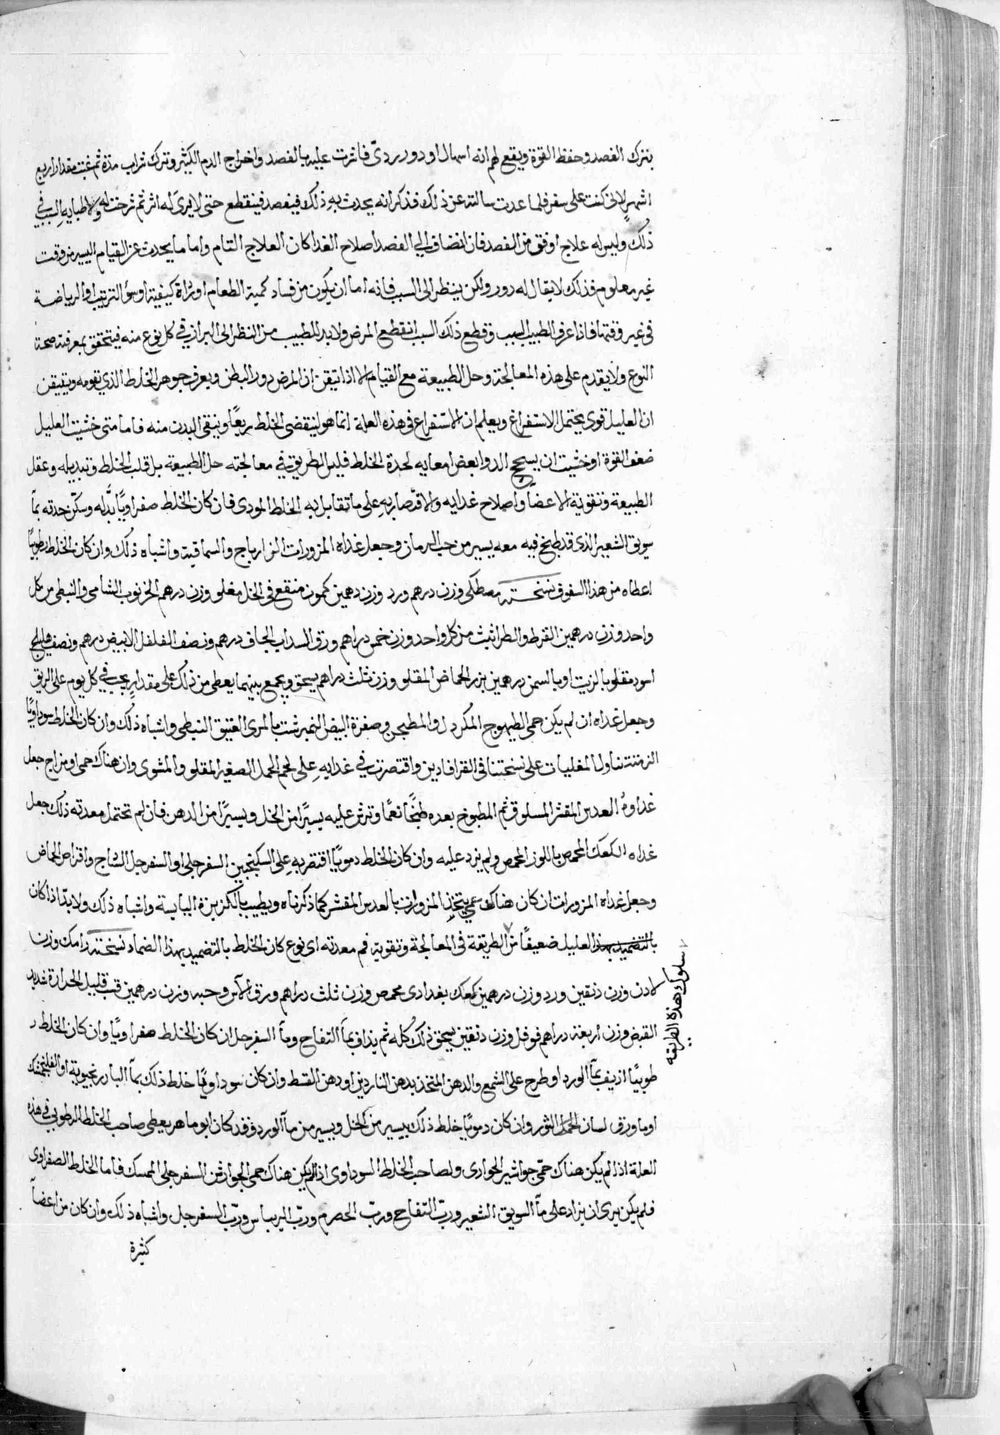 بترك الفصد وحفظ القوة ويقع لهم انه اسهال او دور ردئ فاشرت عليه بالفصد واخراج الدم الكثير وترك شراب مدة ثم غبت مقدار اربع
اشهر لانى كنت على سفر فلما عدت سالته عن ذلك فذكر انه يحدث به ذلك فيفصد فينقطع حتى لا يرى له اثر ثم شرحت له ولاطبايه السبب في
ذلك وليس له علاج اوفق من الفصد فان انضاف الى الفصد اصلاح الغدا كان العلاج التام واما ما يحدث عن القيام اليسير من وقت
غير معلوم فذلك لا يقال له دور ولكن ينظر الى السبب فانه اما ان يكون من فساد كمية الطعام او رداة كيفيته او سؤ الترتيب او الرياضة
فى غير وقتها فاذا عرف الطبيب السبب وقطع ذلك السبب انقطع المرض ولا بد للطبيب من النظر الى البراز في كل نوع منه فيتحقق بمعرفته صحة
النوع ولا يقدم على هذه المعالجة وحل الطبيعة مع القيام الا اذا تيقن ان المرض دور البطن ويعرف جوهر الخلط الذي تقومه ويتيقن
ان العليل قوى يحتمل الاستفراغ ويعلم ان الاستفراغ فى هذه العلة انما هو لينقضى الخلط ريعًا وينقى البدن منه فاما متى خشيت العليل
ضعف القوة او خشيت ان يسحج الدوا بعض امعايه لحدة الخلط فليس الطريق في معالجته حل الطبيعة بل قلب الخلط وتبديله وعقل
الطبيعة وتقوية الاعضآ واصلاح غدايه والاقتصار به على ما تقابل به الخلط الموذى فان كان الخلط صفراويًا بدّله وسكّن حدته بمآ
سويق الشعير الذى قد طبخ فيه معه يسير من حب الرمان وجعل غداه المزورات الزارباج والسماقية واشباه ذلك وان كان الخلط رطوبيًا
اعطاه من هذا السفوف نسخته مصطكى وزن درهم ورد وزن دهمين كمون منقع فى الخل مغلو وزن درهم الخرنوب الشامى والنبطى من كل
واحد وزن درهمين القرط والطراثيث من كل واحد وزن خمس دراهم ورق السداب الجاف درهم ونصف الفلفل الابيض درهم ونصف هليلج
اسود مقلو بالزيت او بالسمن درهمين بزر الحماض المقلو وزن ثلث دراهم يسحق ويجمع بينهما يعطى من ذلك على مقدار يجب في كل يوم على الريق
وجعل غداه ان لم يكن حمى الطيهوج المكردل والمطجن وصفرة البيض النمبرشت بالمرى العتيق النبطى واشباه ذلك وان كان الخلط سوداويًا
الزمته تناول المغليات على نسختنا فى القرافادين واقتصرت في غدايه على لحم الحمل الصغير المقلو والمشوى وان هناك حمى او مزاج جعل
غداوه العدس المقشر المسلوق ثم المطبوخ بعده طبخًا نعمًا وترش عليه يسيرًا من الخل ويسيرًا من الدهن فان لم تحتمل معدته ذلك جعل
غداه الكعك المحمص باللوز المحمص ولم يزد عليه وان كان الخلط دمويًا اقتصر به على السكنجبين السفرجلى او السفرجل الساج واقراص الحماض
وجعل غداه المزورات ان كان هناك حمى يتخذ المزورات بالعدس المقشر كما ذكرناه ويطيب بالكزبرة اليابسة واشباه ذلك ولا بدّ اذا كان
العليل ضعيفًا من الطريقة فى المعالجة وتقوية فم معدته اى نوع كان الخلط بالتضميد بهذا الضماد نسخته رامك وزن
سلوك هذه الطريقه
لادن وزن دنقين ورد وزن درهمين كعك بغدادى محمص وزن ثلث دراهم ورق الآس وحبه وزن درهمين قب قليل الحرارة شديد
القبض وزن اربعة دراهم فوفل وزن دنقين يسحق ذلك كله ثم يذاف بمآ التفاح ومآ السفرجل ان كان الخلط صفراويًا وان كان الخلط ر
طوبيًا اذيف بمآ الورد او طرح على الشمع والدهن المتخذ بدهن الناردين او دهن القسط وان كان سوداويًا خلط ذلك بمآ البادرنجبوية او الفلنجمشك
او ما ورق لسان الحمل الثور وان كان دمويًا خلط ذلك بيسير من الخل ويسير من مآ الورد وقد كان ابو ماهر يعطى صاحب الخلط الرطوبى فى هذه
العلة اذا لم يكن هناك حمّى جواشير الخوارى ولصاحب الخلط السوداوى اذا لم يكن هناك حمى الجوارشن السفرجلى الممسك فاما الخلط الصفراوى
فلم يكن يرى ان يزاد على مآ السويق الشعير وربّ التفاح وربّ الحصرم وربّ الريباس وربّ السفرجل واشباه ذلك وان كان من اعضآ
كثيرة